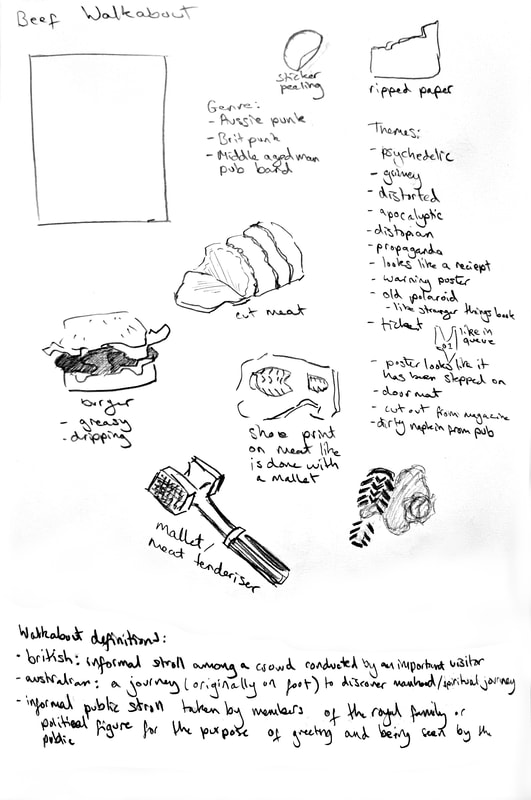 Beef Walkabout
sticker
peeling
ripped paper
Genre:
- Aussie punk
- Brit punk
- Middle aged man
pub band
Themes:
- psychedelic
- grimey
- distorted
- apocalyptic
- distopian
- propaganda
- looks like a reciept
- warning poster
- old polaroid
- like stranger things book
- ticket
02
like in
queue
- poster looks like it
has been stepped on
- doormat
- cut out from magazine
- dirty napkin from pub
cut meat
burger
- greasy
- dripping
shoe print
on meat like
is done with
a mallet
mallet/
meat tenderiser
Walkabout definitions:
- british: informal stroll among a crowd conducted by an important visitor
- australian: a journey (originally on foot) to discover manhood/spiritual journey
- informal public stroll taken by members of the royal family or
political figure for the purpose of greeting and being seen by the
public